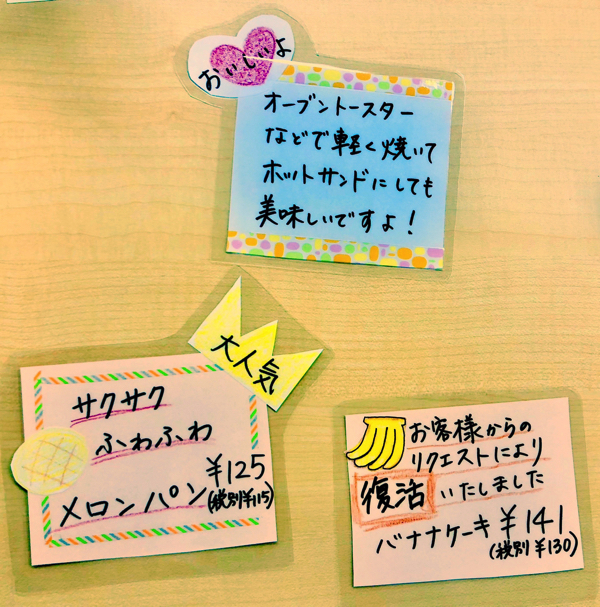 おいしいよ
オーブントースター
などで軽く焼いて
ホットサンドにしても
美味しいですよ！
大人気
サクサク
ふわふわ
¥125
メロンパン(税別¥115)
お客様からの
リクエストにより
復活いたしました
バナナケーキ¥141
(税別¥130)